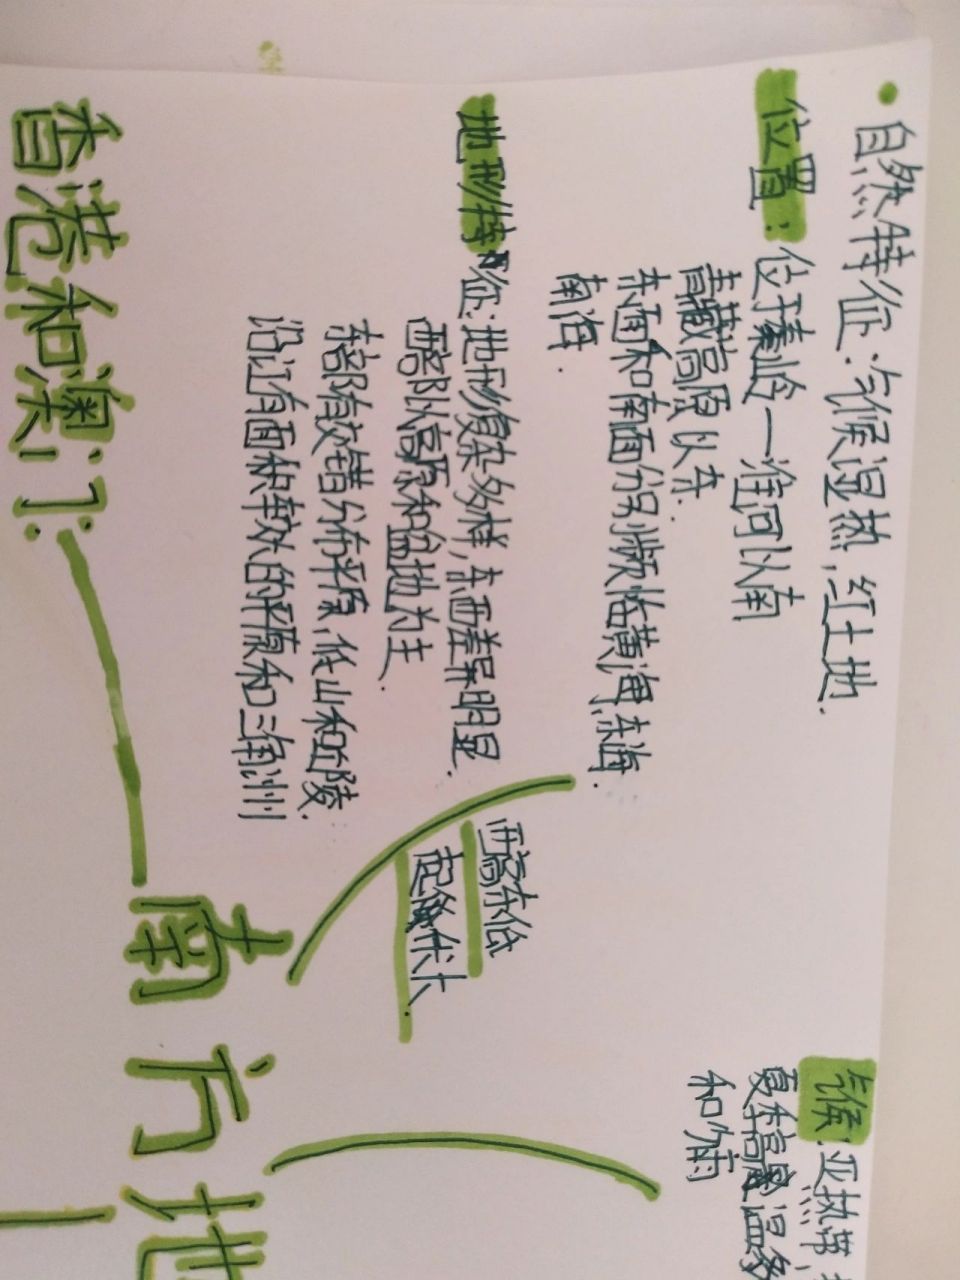 自然特征:气候湿热,红土地.
位置:位于秦岭一淮河以南
青藏高原以东.
东面和南面分别频临黄海,东海.
南海.
地形特征:地形复杂多样,东西差异明显.
西部以高原和盆地为主.
东部有交错分布平原,低山和丘陵.
沿江有面积较大的平原和三角洲
西高东低
起伏
气候:亚热带,
夏季高温多
和少雨
香港和澳门:
南方地